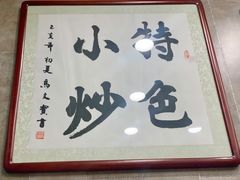 特色
小炒
乙亥年初夏馬文寶書